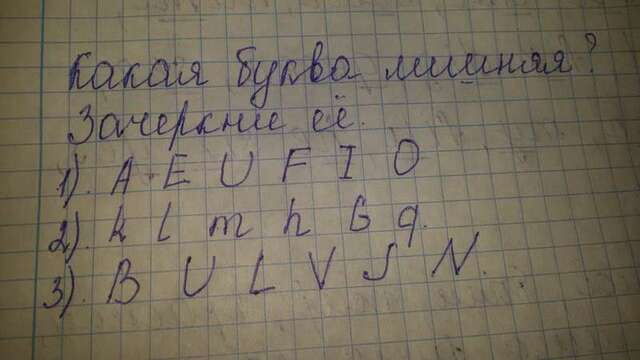 Какая буква лишная?
Зачеркни её.
1). A E U F I O
2). k l m h G q.
3). B U L V S N.